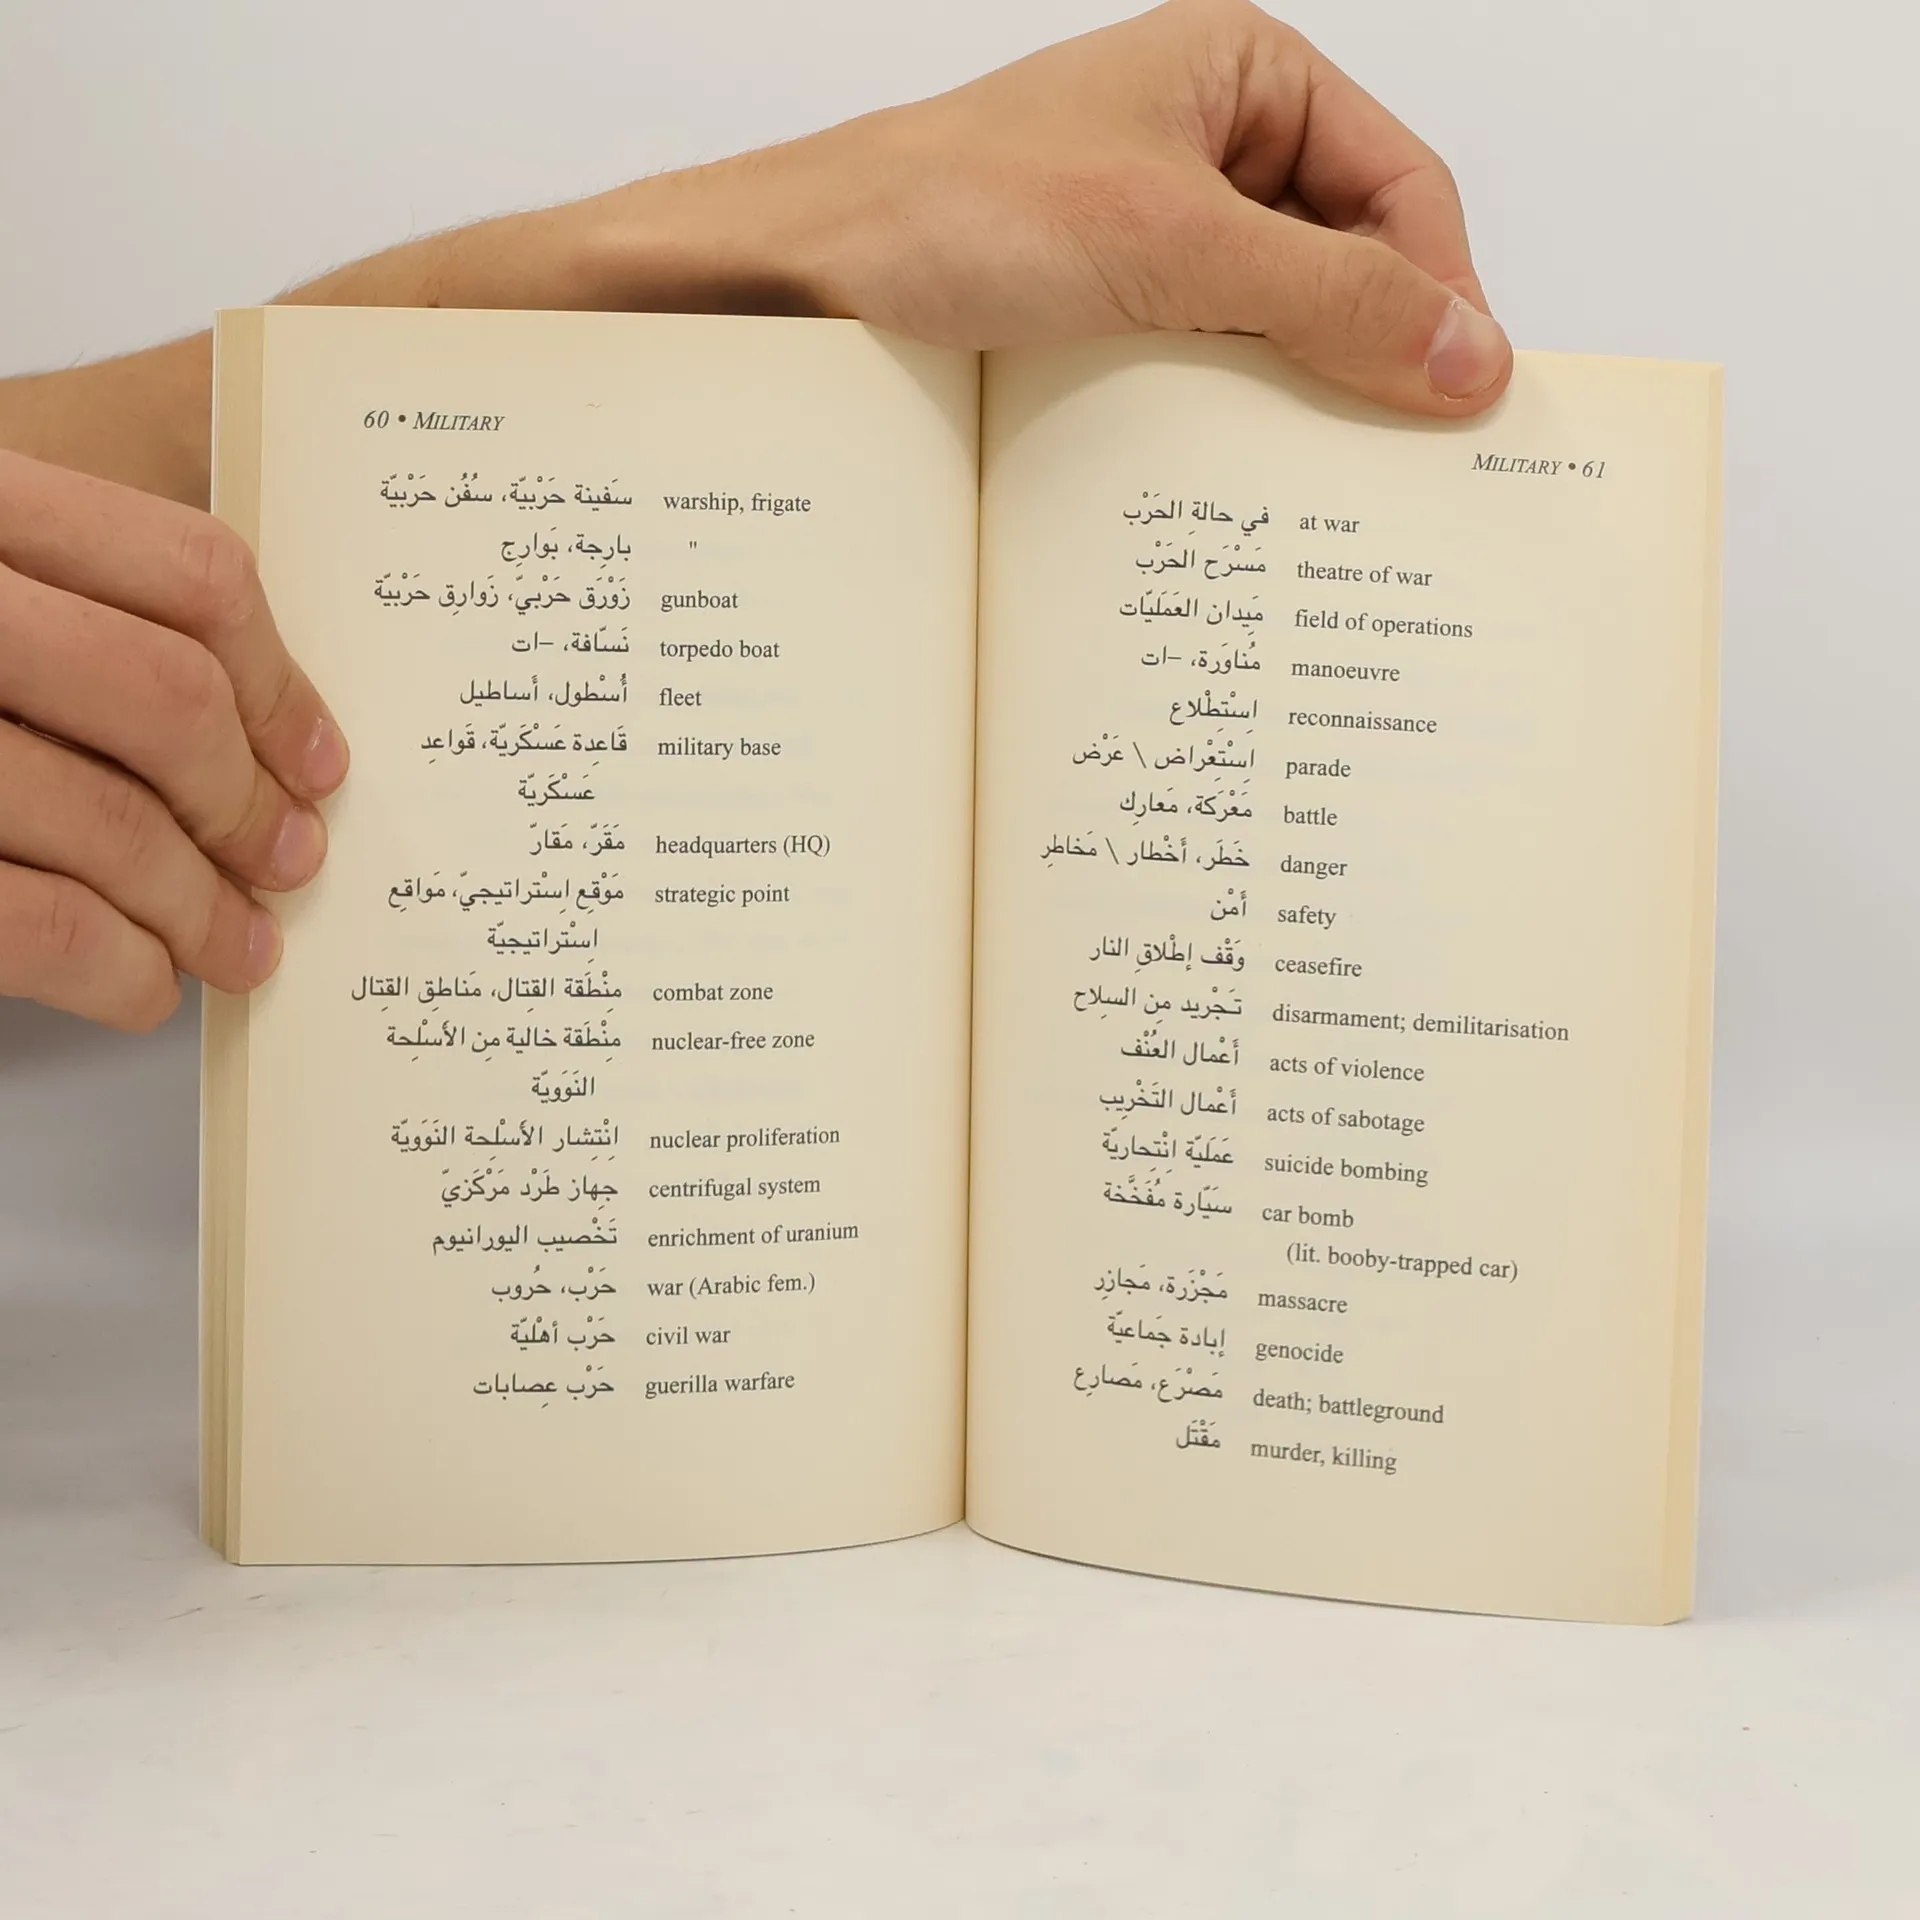 60 • MILITARY
سَفينة حَرْبيّة، سُفُن حَرْبيّة warship, frigate
بارِجة، بَوارِج "
زَوْرَق حَرْبيّ، زَوارِق حَرْبيّة gunboat
نَسّافة، –ات torpedo boat
أُسْطول، أَساطيل fleet
قَاعِدة عَسْكَريّة، قَواعِد military base
عَسْكَريّة
مَقَرّ، مَقارّ headquarters (HQ)
مَوْقِع اِسْتراتيجيّ، مَواقِع strategic point
اِسْتراتيجيّة
مِنْطَقة القِتال، مَناطِق القِتال combat zone
مِنْطَقة خالية مِن الأَسْلِحة nuclear-free zone
النَوَويّة
اِنْتِشار الأَسْلِحة النَوَويّة nuclear proliferation
جِهاز طَرْد مَرْكَزيّ centrifugal system
تَخْصيب اليورانيوم enrichment of uranium
حَرْب، حُروب war (Arabic fem.)
حَرْب أهْليّة civil war
حَرْب عِصابات guerilla warfare
MILITARY • 61
في حالةِ الحَرْب at war
مَسْرَح الحَرْب theatre of war
مَيِدان العَمَليّات field of operations
مُناوَرة، –ات manoeuvre
اِسْتِطْلاع reconnaissance
اِسْتِعْراض \ عَرْض parade
مَعْرَكة، مَعارِك battle
خَطَر، أَخْطار \ مَخاطِر danger
أَمْن safety
وَقْف إطْلاقِ النار ceasefire
تَجْريد مِن السِلاح disarmament; demilitarisation
أَعْمال العُنْف acts of violence
أَعْمال التَخْرِيب acts of sabotage
عَمَليّة اِنْتِحاريّة suicide bombing
سَيّارة مُفَخَّخة car bomb
(lit. booby-trapped car)
مَجْزَرة، مَجازِر massacre
إبادة جَماعيّة genocide
مَصْرَع، مَصارِع death; battleground
مَقْتَل murder, killing